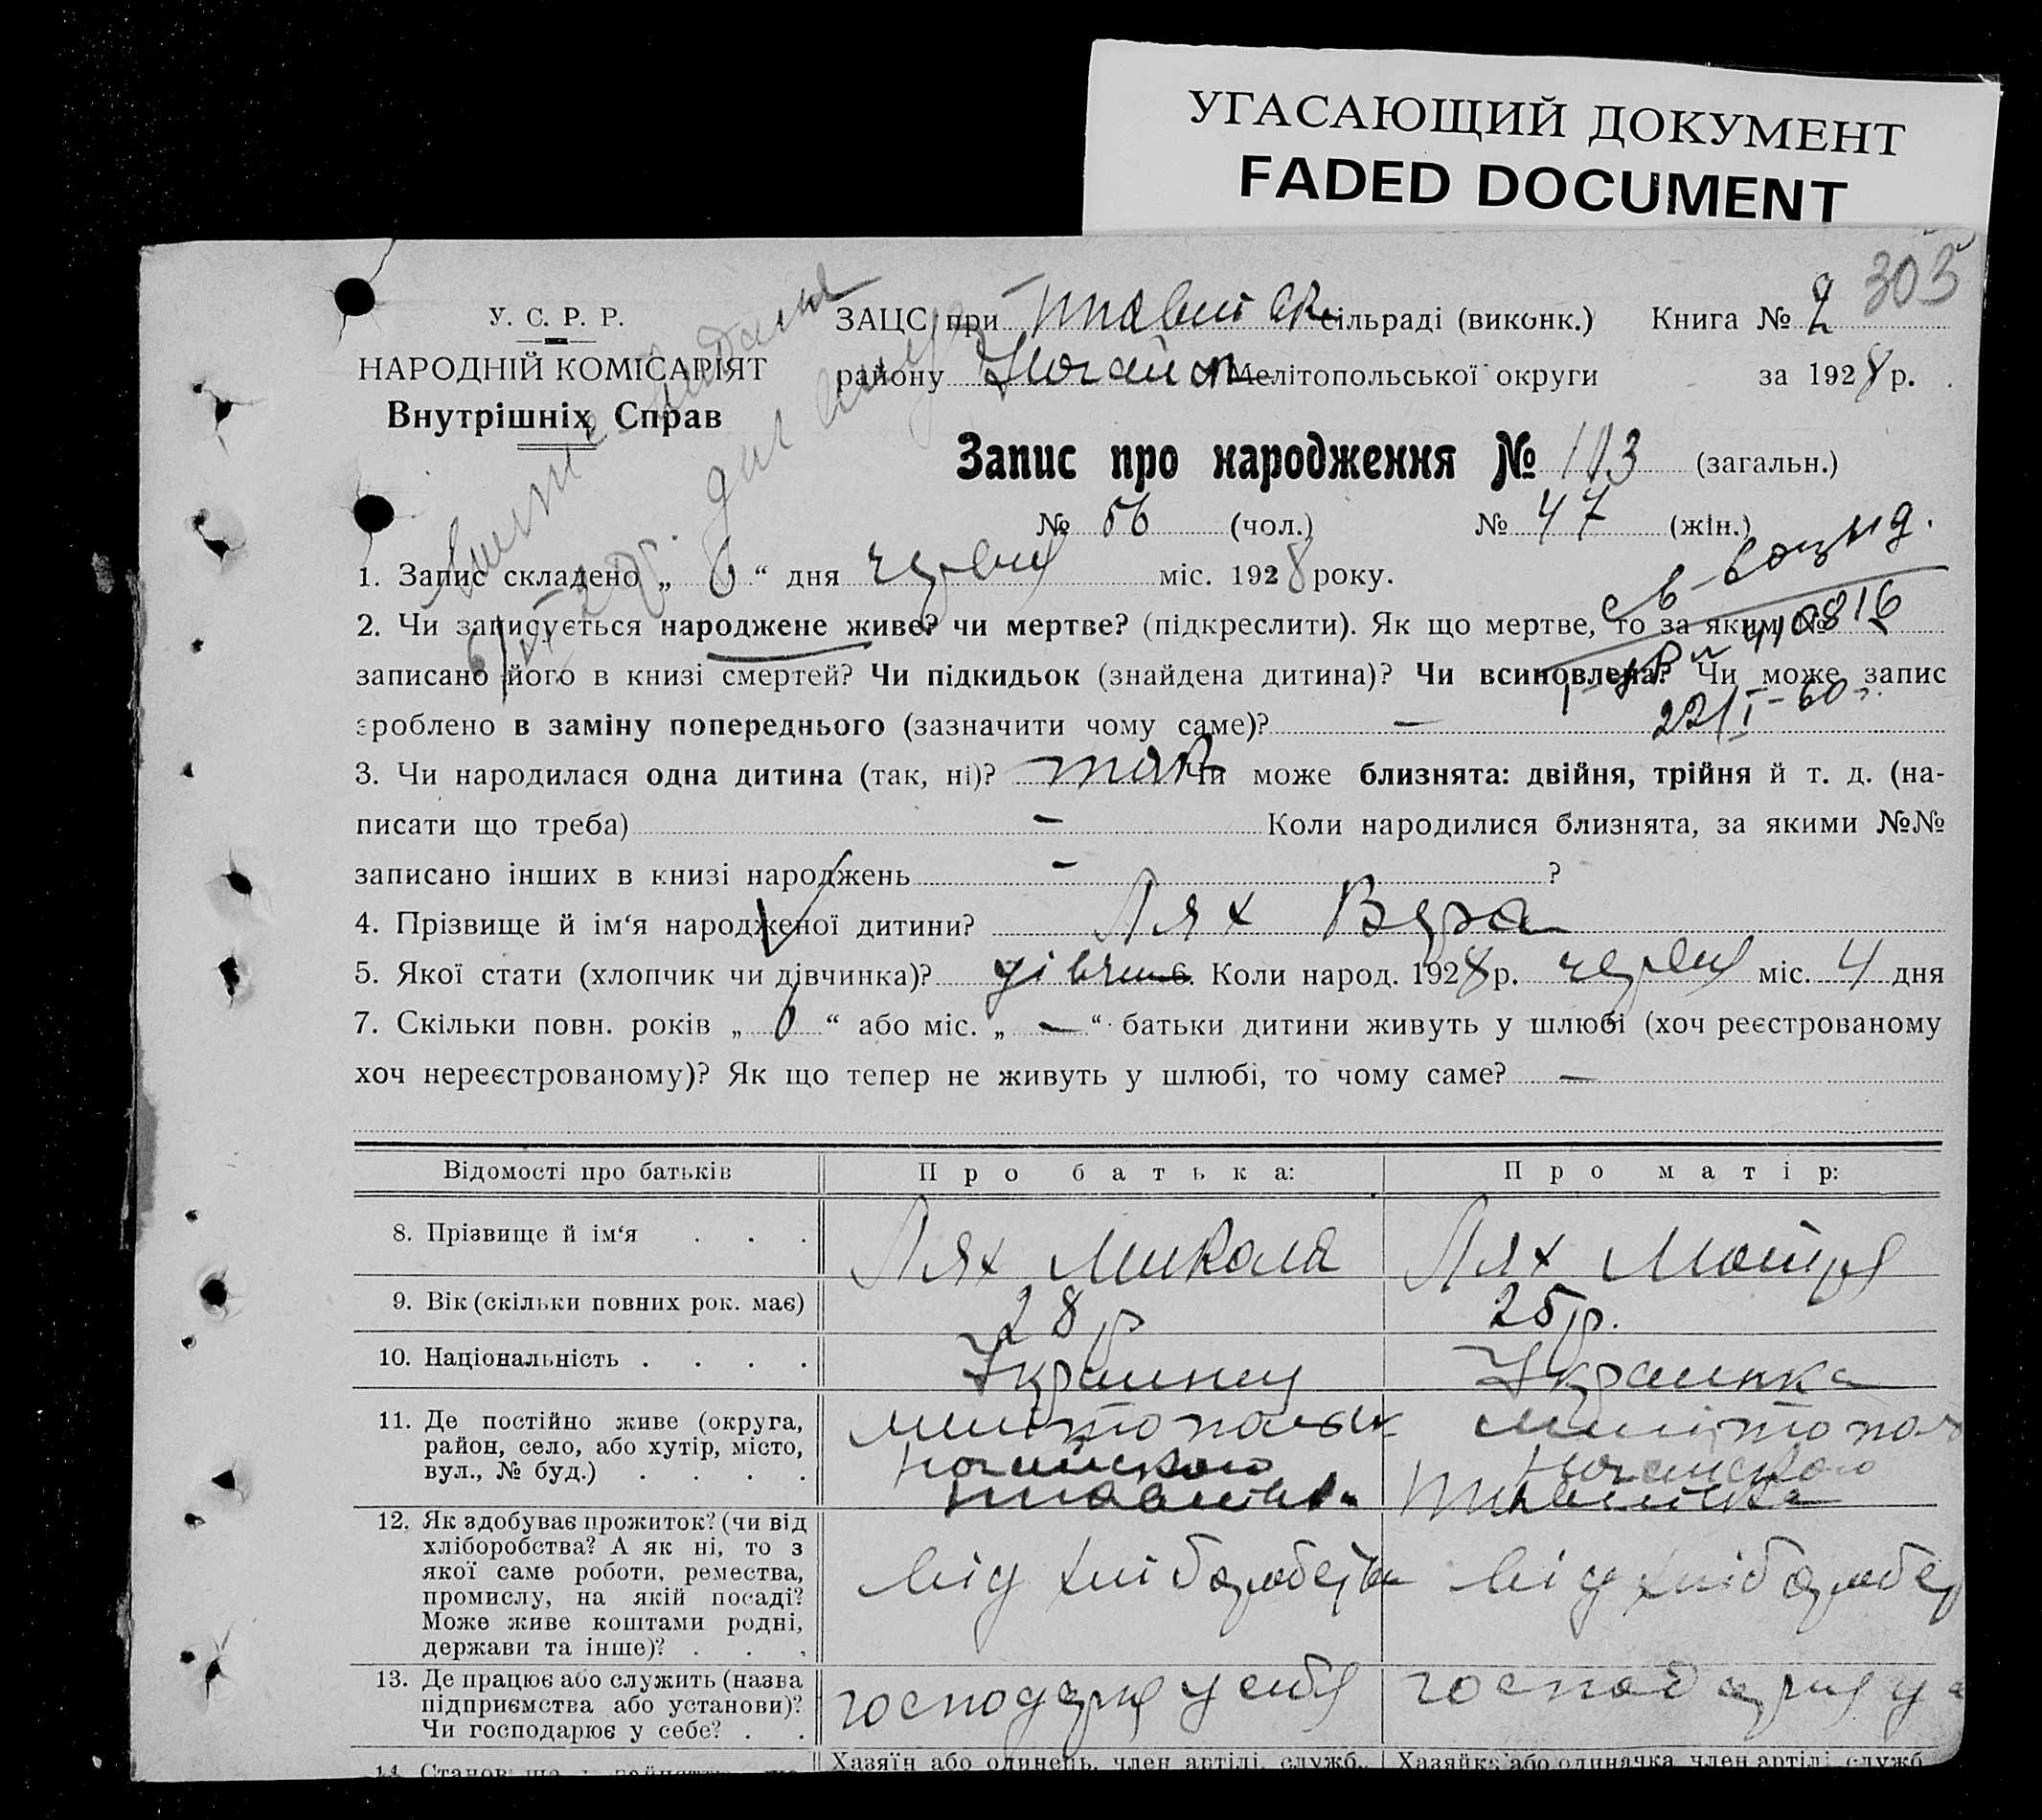 УГАСАЮЩИЙ ДОКУМЕНТ
FADED DOCUMENT
303
У. С. Р. Р.
НАРОДНІЙ КОМІСАРІЯТ
Внутрішніх Справ
ЗАЦС при сільраді (виконк.) Книга № 2
району Ногайск Мелітопольської округи за 1928 р.
Запис про народження № 113 (загальн.)
№ 56 (чол.) № 47 (жін.)
1. Запис складено „ 6 “ дня червня міс. 1928 року.
2. Чи записується народжене живе? чи мертве? (підкреслити). Як що мертве, то за яким №
410816
записано його в книзі смертей? Чи підкидьок (знайдена дитина)? Чи всиновлена? Чи може запис
зроблено в заміну попереднього (зазначити чому саме)? —
22/I-60 г.
3. Чи народилася одна дитина (так, ні)? так Чи може близнята: двійня, трійня й т. д. (на-
писати що треба) — Коли народилися близнята, за якими №№
записано інших в книзі народжень — ?
4. Прізвище й ім‘я народженої дитини? Лях Вера
5. Якої стати (хлопчик чи дівчинка)? дівчин 6. Коли народ. 1928 р. червня міс. 4 дня
7. Скільки повн. років „ 6 “ або міс. „ — “ батьки дитини живуть у шлюбі (хоч реєстрованому
хоч нереєстрованому)? Як що тепер не живуть у шлюбі, то чому саме? —
Відомості про батьків Про батька: Про матір:
8. Прізвище й ім‘я . . . Лях Микола Лях Мотря
9. Вік (скільки повних рок. має) 28 р 25 р.
10. Національність . . . . Украинец Украинка
11. Де постійно живе (округа, мелітопольск мелітопол
район, село, або хутір, місто, Ногайского Ногайского
вул., № буд.) . . . .
12. Як здобуває прожиток? (чи від
хліборобства? А як ні, то з
якої саме роботи, ремества, від хліборобства від хлібороб
промислу, на якій посаді?
Може живе коштами родні,
держави та інше)? . . .
13. Де працює або служить (назва
підприємства або установи)? господарює у себя господарює у
Чи господарює у себе? . .
Хазяїн або одинець, член артілі, служб., Хазяйка або одиначка, член артілі, служб